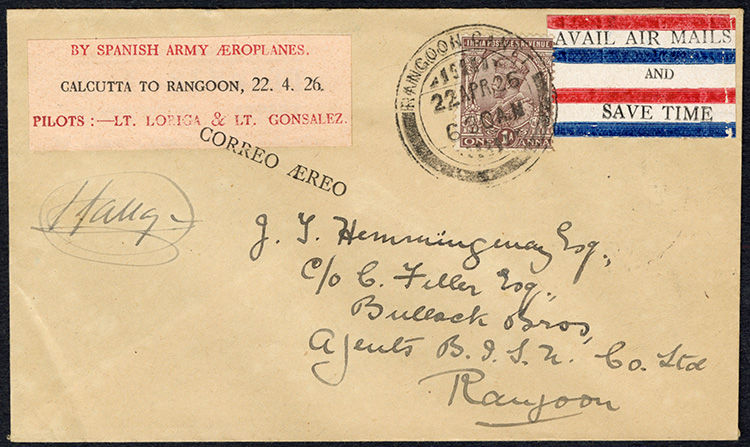 BY SPANISH ARMY ÆROPLANES.
CALCUTTA TO RANGOON, 22. 4. 26.
PILOTS :—LT. LORIGA & LT. GONSALEZ.
CORREO ÆREO
RANGOON
22 APR 26
INDIA POSTAGE & REVENUE
ONE ANNA
AVAIL AIR MAILS
AND
SAVE TIME
J. T. Hemmingway Esq.,
C/o C. Feller Esq.,
Bullock Bros,
Agents B.I.S.N. Co. Ltd
Rangoon